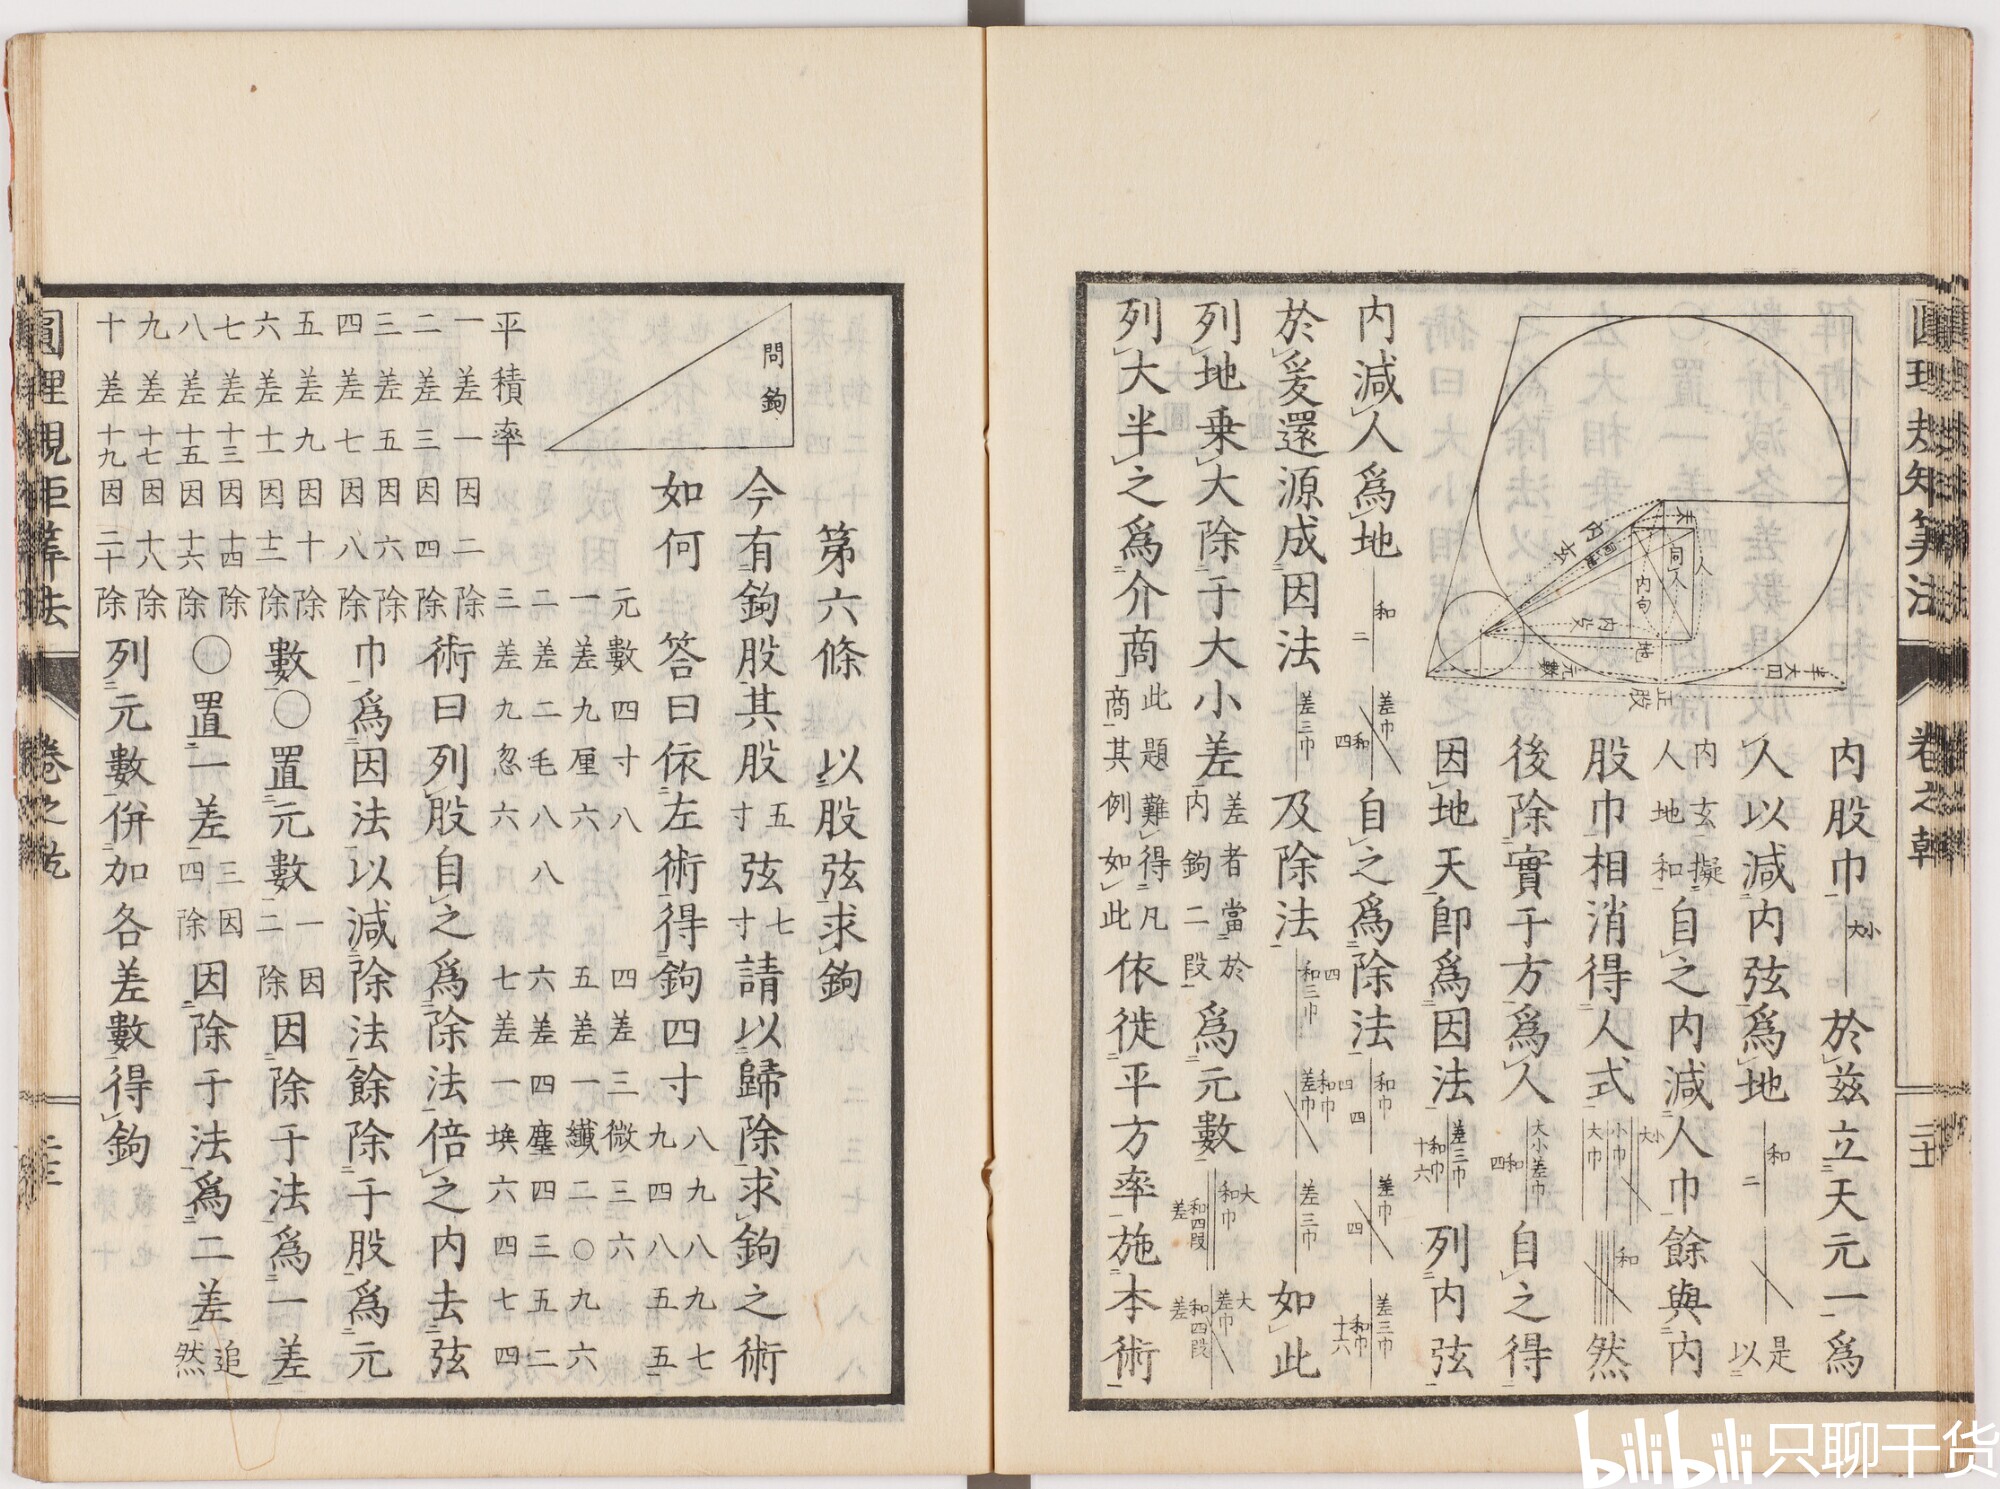 圓理規矩筭法 卷之乾
内股巾 大小 於兹立天元一爲
人以減内弦爲地 和二 是以
内玄擬人地和 自之内減人巾餘與内
股巾相消得人式 大小 小巾 大巾 和 然
後除實于方爲人 大小差巾 和四 自之得
因地天即爲因法 差三巾 和巾十六 列内弦
内減人爲地 和二 差巾 和四 自之爲除法 和巾四 差巾四 差三巾 和巾十六
於爰還源成因法 差三巾 及除法 四和三巾 四和巾差巾 差三巾 如此
列地乘大除于大小差 差者當於内鉤二段 爲元數 大和巾 和四段差 大差巾 和四段差
列大半之爲介商 此題難得凡商其例如此 依徙平方率施本術
天
人
同人
内勾
内玄
内殳
地
元數
半大円
正股
第六條 以股弦求鉤
今有鉤股其股五寸弦七寸請以歸除求鉤之術
如何 答曰依左術得鉤四寸八九八九七九四八五五
問鉤
元數四寸八 四差三微三六
一差九厘六 五差一纖二〇九六
二差二毛八八 六差四塵四三五二
三差九忽六 七差一埃六四七四
平積率
一差一因二除
二差三因四除
三差五因六除
四差七因八除
五差九因十除
六差十一因十二除
七差十三因十四除
八差十五因十六除
九差十七因十八除
十差十九因二十除
術曰列股自之爲除法倍之内去弦
巾爲因法以減除法餘除于股爲元
數〇置元數一因二除因除于法爲一差
〇置一差三因四除因除于法爲二差追然
列元數併加各差數得鉤
圓理規矩筭法 卷之乾
bilibili 只聊干货